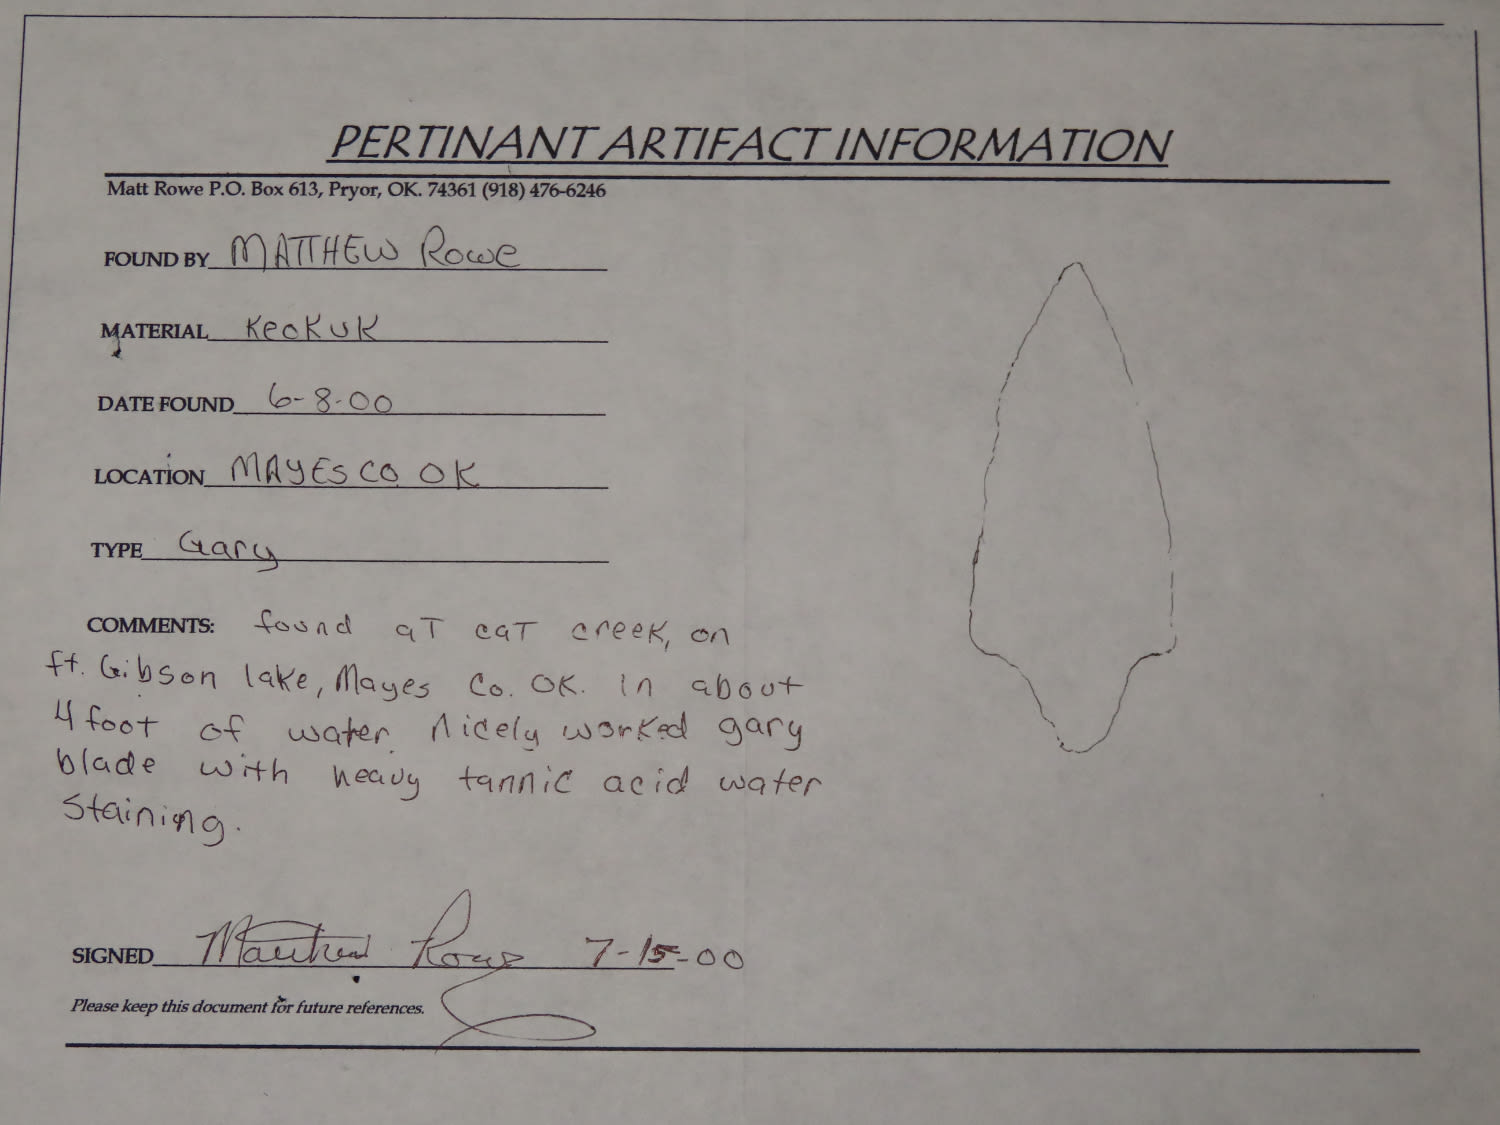 PERTINANT ARTIFACT INFORMATION
Matt Rowe P.O. Box 613, Pryor, OK. 74361 (918) 476-6246
FOUND BY MATTHEW Rowe
MATERIAL KeoKuK
DATE FOUND 6-8-00
LOCATION MAYES CO. OK
TYPE Gary
COMMENTS: found aT caT creek, on
ft. Gibson lake, Mayes Co. OK. in about
4 foot of water. Nicely worked gary
blade with heavy tannic acid water
Staining.
SIGNED Matthew Rowe 7-15-00
Please keep this document for future references.